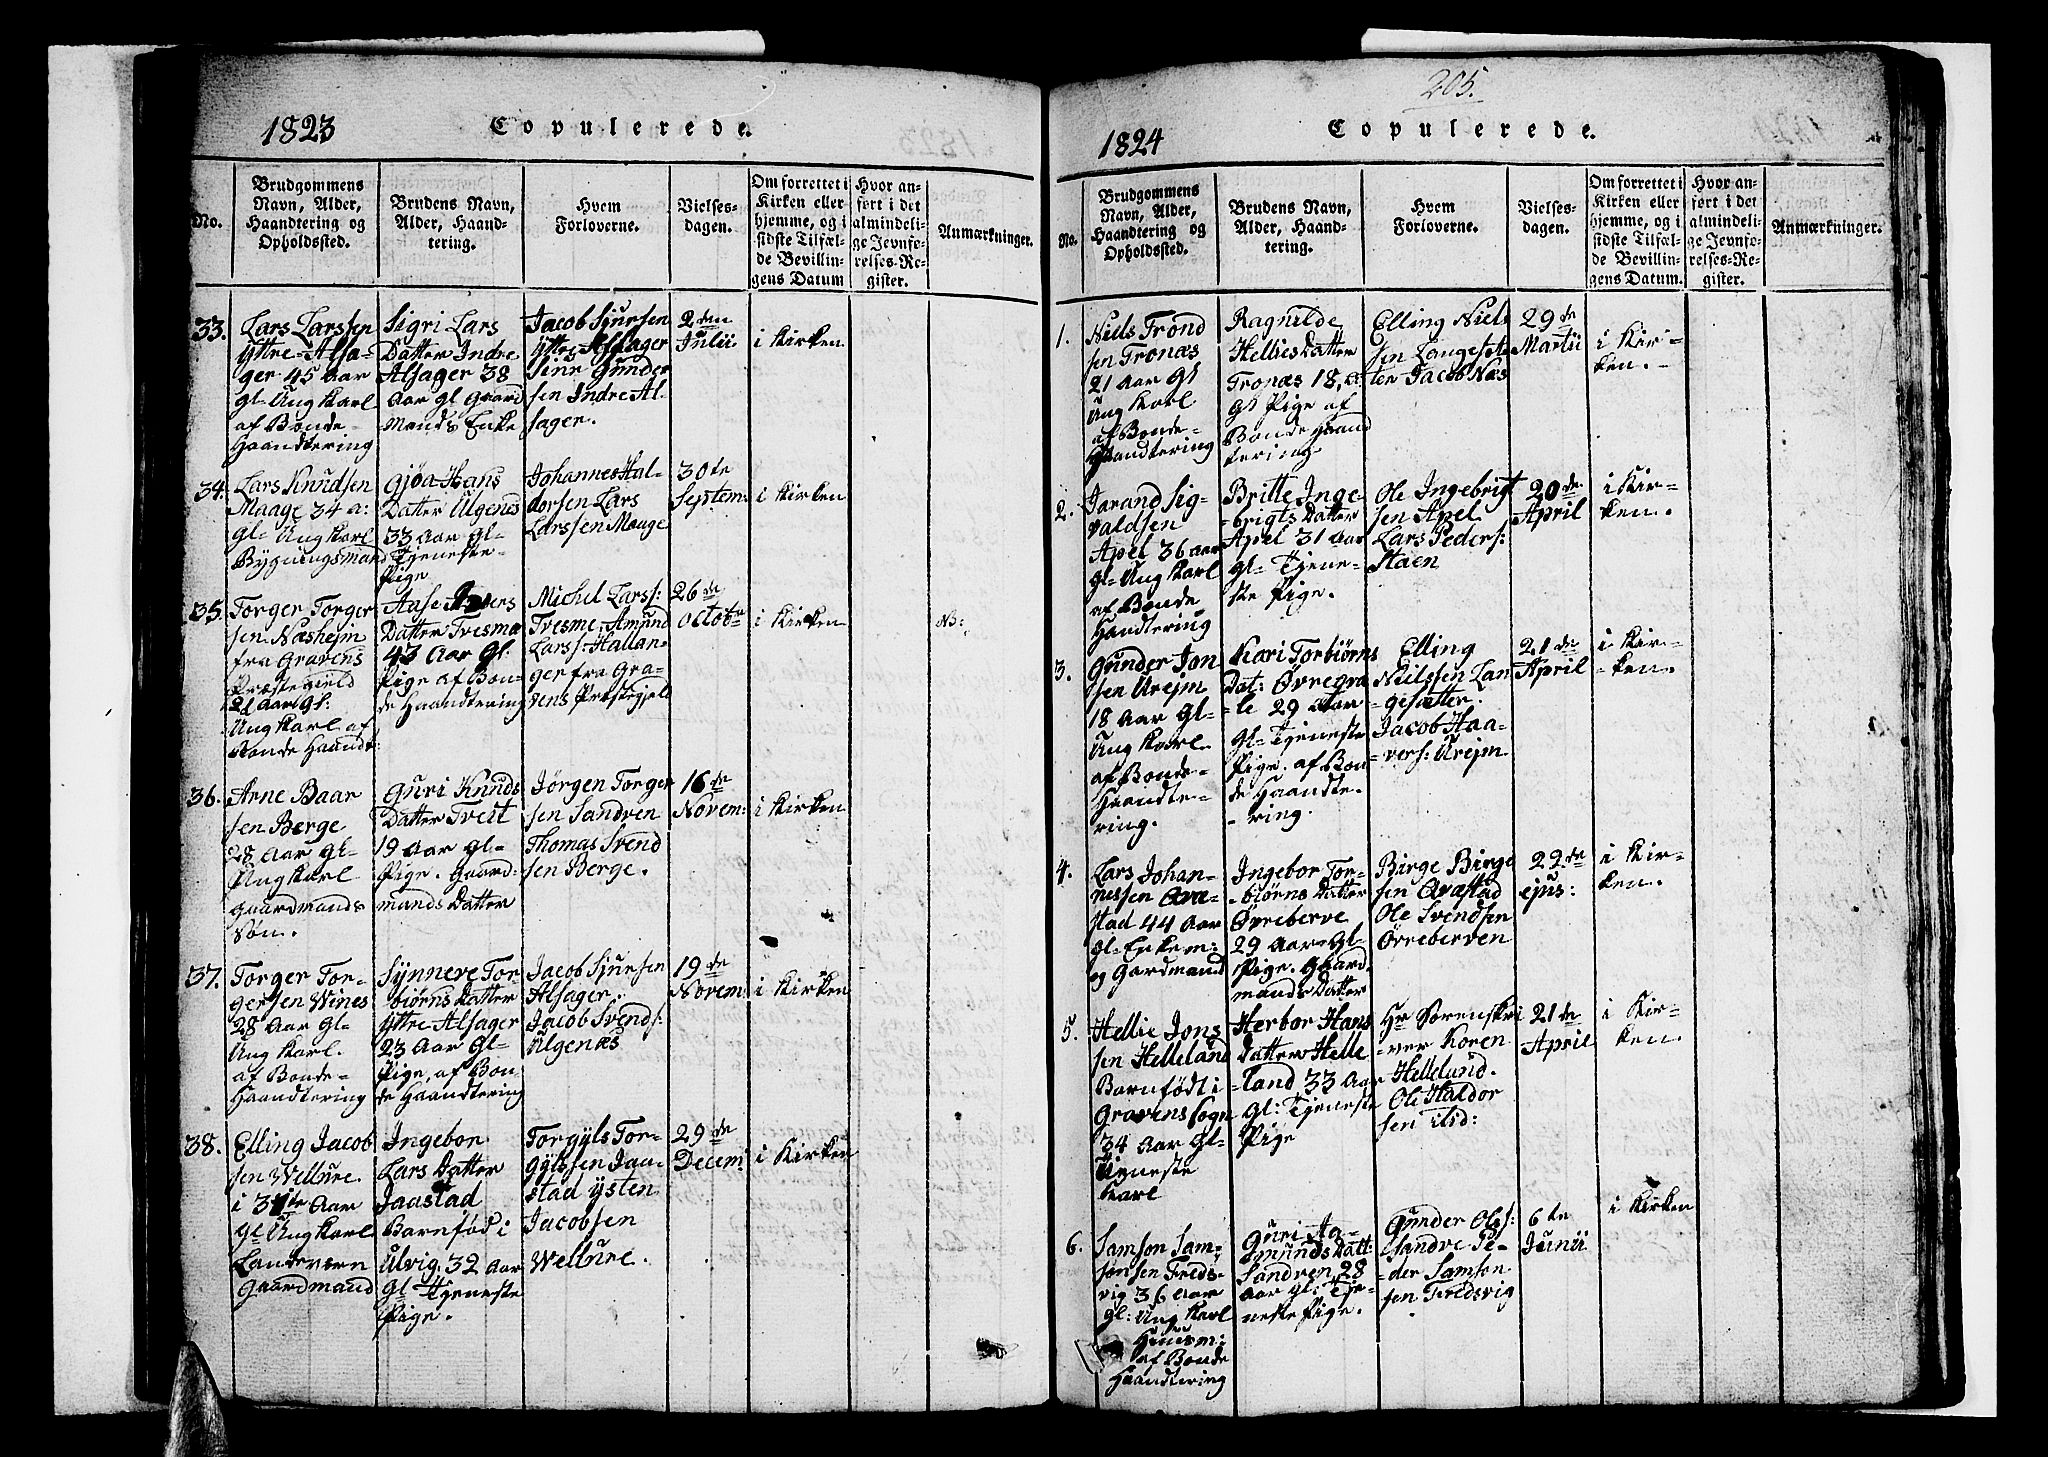 1823
Copulerede.
No.
Brudgommens
Navn, Alder,
Haandtering og
Opholdssted.
Brudens Navn,
Alder, Haand-
tering.
Hvem
Forloverne.
Vielses-
dagen.
Om forrettet i
Kirken eller
hjemme, og i
sidste Tilfæl-
de Bevillin-
gens Datum
Hvor an-
ført i det
almindeli-
ge Jevnfø-
relses-Re-
gister.
Anmærkninger.
33.
Lars Larssen
Yttre-Alsa-
ger 45 Aar
gl- Ung Karl
af Bonde-
Haandtering
Sigri Lars
Datter Indre
Alsager 38
Aar gl Gaard
Mands Enke
Jacob Sjursen
Yttre Alsager
Gunder
sen Indre Al-
sager.
2den
Julii.
i Kirken
34.
Lars Knudsen
Maage 34 a:
gl- Ung Karl
Bygningsmand
Gjøa Hans
Datter Ulgenes
33 Aar gl-
Tjeneste-
Pige
Johannes Hal-
dorsen Lars
Larssen Mauge
30te
Septem:
i Kirken
35.
Torger Torger
sen Næshejm
fra Gravens
Præstegield
21 Aar gl:
Ung Karl af
Bonde Haandt:
Aase
Datter Tresmæ
43 Aar gl:
Pige af Bon-
de Haandtering
Michel Larss:
Tresme. Amund
Larss: Hallan-
ger fra Gra-
vens Præstegjeld
26de
Octobr
i Kirken
NB:
36.
Arne Baar
sen Berge
28 Aar gl-
Ung Karl
Gaardmands
Søn.
Guri Knuds
Datter Treit
19 Aar gl-
Pige. Gaard-
mands Datter
Jørgen Torger
sen Sandven
Thomas Svend
sen Berge.
16de
Novem:
i Kirken
37.
Torger Tor-
gersen Wines
28 Aar gl-
Ung Karl.
af Bonde-
Haandtering
Synneve Tor-
biørns Datter
Yttre Alsager
23 Aar gl-
Pige, af Bon-
de Haandtering
Jacob Sjursen
Alsager.
Jacob Svends:
Ulgenæs
19de
Novem:
i Kirken
38.
Elling Jacob
sen Wellure.
i 31te Aar
gl Ung Karl
Landeværn
Gaardmand
Ingebor
Lars Datter
Jaastad
Barnfød i
Ulvig. 32 Aar
gl- Tjeneste
Pige.
Torgyls Tor-
gylssen Jaa-
stad Ysten
Jacobsen
Wellure.
29de
Decem:
i Kirken
205.
1824
Copulerede.
No.
Brudgommens
Navn, Alder,
Haandtering og
Opholdssted.
Brudens Navn,
Alder, Haand-
tering.
Hvem
Forloverne.
Vielses-
dagen.
Om forrettet i
Kirken eller
hjemme, og i
sidste Tilfæl-
de Bevillin-
gens Datum.
Hvor an-
ført i det
almindeli-
ge Jevnfø-
relses-Re-
gister.
Anmærkninger.
1.
Niels Trond
sen Tronæs
21 Aar gl
Ung Karl
af Bonde-
Haandtering
Ragnilde
Hellies Datter
Tronæs 18, a
gl Pige af
Bonde Haand
tering
Elling Niels
sen Langesæ
ter Jacob Næs
29de
Martii
i Kir-
ken.
2.
Jarand Sig-
valdsen
Apel 36 aar
gl- Ung Karl
af Bonde
Haandtering
Britte Inge-
-brigts Datter
Apel 31 Aar
gl- Tjene-
ste Pige.
Ole Ingebrigt
sen Apel
Lars Peders:
Staen
20de
April
i Kir-
ken.
3.
Gunder Jon
sen Urejm
18 Aar gl-
Ung Karl-
af Bonde-
Haandte-
ring.
Kari Torbiørns
Dat: Øvregra
-le 29 Aar
gl- Tjeneste
Pige. af Bon-
de Haandte-
-ring.
Elling
Nielssen Lan
-gesæter.
Jacob Haa-
-vers: Urejm
21de
April
i Kir-
-ken.
4.
Lars Johan-
nessen Qva-
stad 44 Aar
gl- Enkem:
og Gardmand
Ingebor Tor-
-biørns Datter
Øvreberve
29 Aar gl-
Pige. Gaard-
mands Datter
Birge Birge
sen Qvæstad
Ole Svendsen
Øvreberven
22de
ejus:
i Kir-
ken.
5.
Hellie Jons
sen Helleland
Barnfødt i
Gravens Sogn
34 Aar gl-
Tjeneste
Karl
Herbor Hans
Datter Helle
-land 33 Aar
gl: Tjeneste
Pige
Hr Sorenskri
-ver Koren
Hellelund.
Ole Haldor
sen Lid:
21de
April
i Kir-
ken.
6.
Samson Sam-
sonsen Freds-
vig 36 Aar
gl: Ung Karl
Huusm:
af Bonde
Haandtering
Guri Aa-
munds Datt:
Sandven 28
Aar gl: Tje-
neste Pige.
Gunder Olss:
Sandve Pe-
-der Samson
sen Fredsvig
6te
Junii
i Kirken